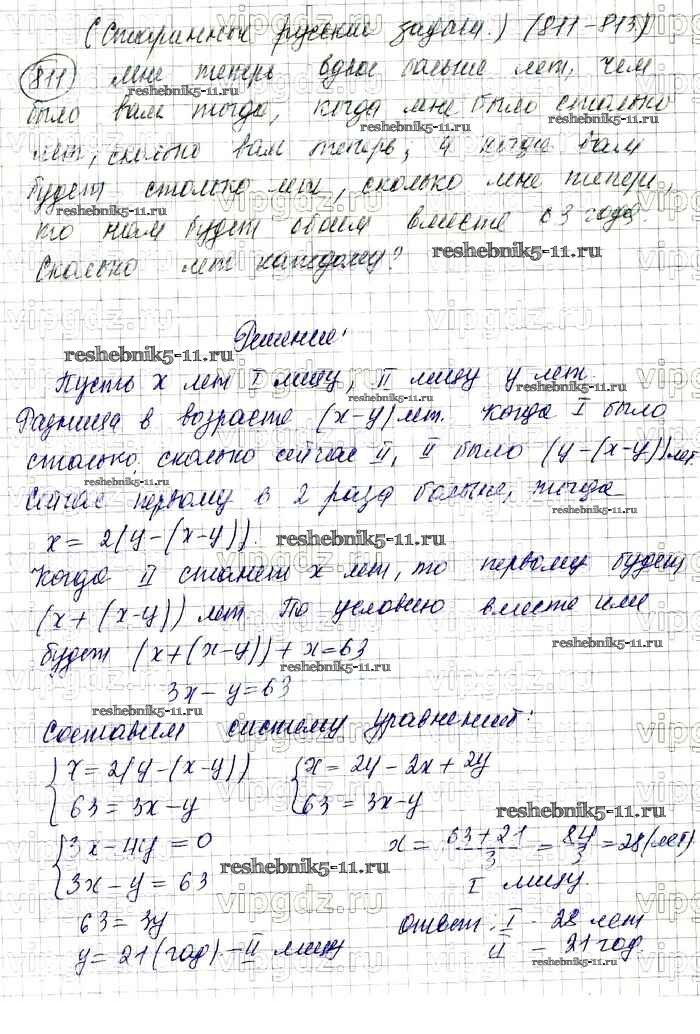 (Старинные русские задачи.) (811-813)
811) Мне теперь вдвое больше лет, чем
было вам тогда, когда мне было столько
лет, сколько вам теперь, а когда вам
будет столько лет, сколько мне теперь,
то нам будет обоим вместе 63 года.
Сколько лет каждому?
Решение:
Пусть x лет I лицу, II лицу y лет.
Разница в возрасте (x-y) лет. Когда I было
столько, сколько сейчас II, II было (y-(x-y)) лет
Сейчас первому в 2 раза больше, тогда
x = 2(y-(x-y)).
Когда II станет x лет, то первому будет
(x+(x-y)) лет. По условию вместе им
будет (x+(x-y))+x=63
3x-y=63
Составим систему уравнений:
{x=2(y-(x-y)) {x=2y-2x+2y
{63=3x-y {63=3x-y
{3x-4y=0 x = (63+21)/3 = 84/3 = 28 (лет)
{3x-y=63 I лицу.
63=3y Ответ. I - 28 лет
y=21 (год) - II лицу II - 21 год.
reshebnik5-11.ru
vipgdz.ru